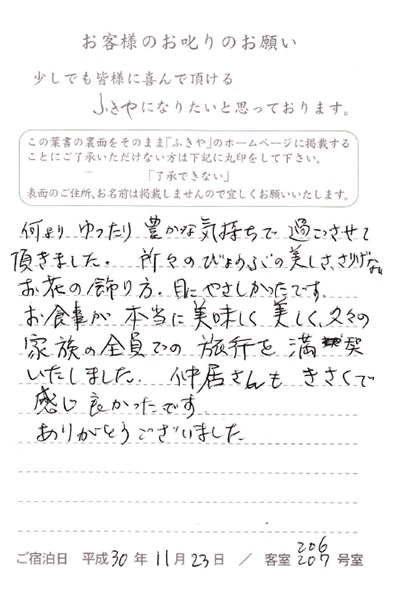 お客様のお叱りのお願い
少しでも皆様に喜んで頂ける
ふきやになりたいと思っております。
この葉書の裏面をそのまま「ふきや」のホームページに掲載する
ことにご了承いただけない方は下記に丸印をして下さい。
「了承できない」
表面のご住所、お名前は掲載しませんので宜しくお願いいたします。
何より ゆったり 豊かな気持ちで 過ごさせて
頂きました。 所々のびょうぶの美しさ、さりげない
お花の飾り方。目にやさしかったです。
お食事が 本当に 美味しく 美しく、久々の
家族の全員での 旅行を 満喫
いたしました。 仲居さんも きさくで
感じ良かったです
ありがとうございました
ご宿泊日 平成30年11月23日 / 客室 206 207 号室